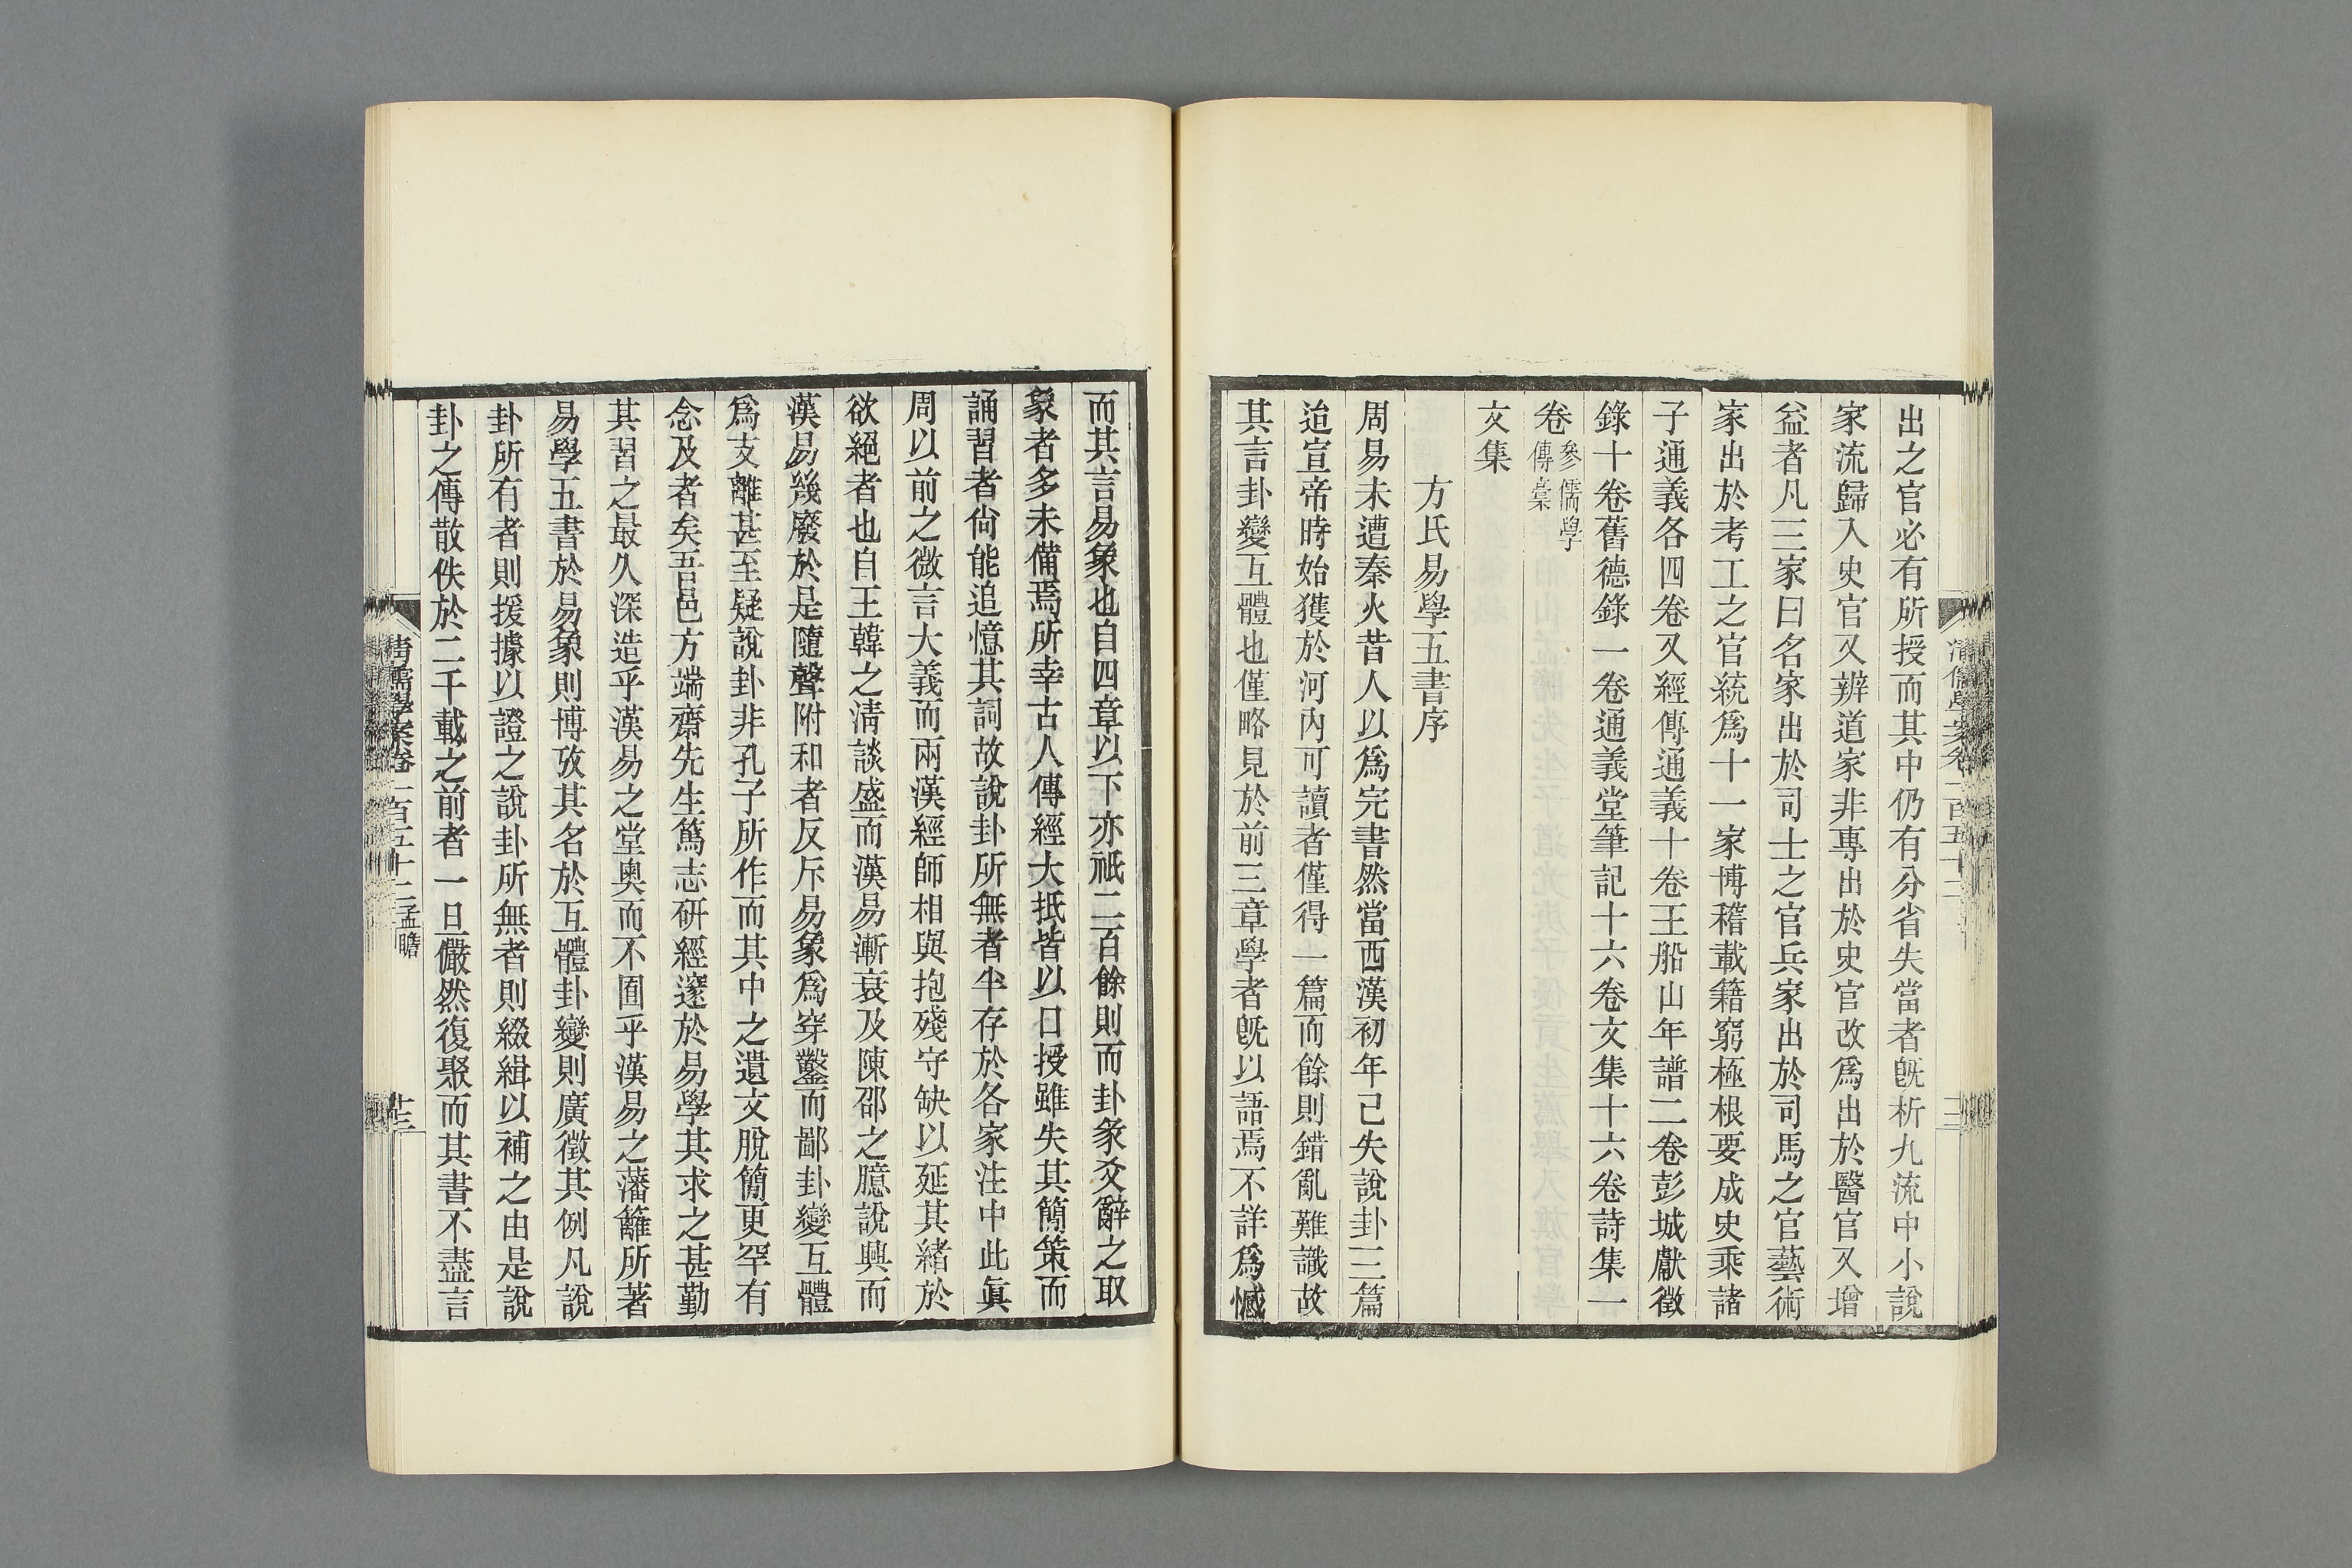 出之官必有所授而其中仍有分省失當者旣析九流中小說
家流歸入史官又辨道家非專出於史官改爲出於醫官又增
益者凡三家曰名家出於司士之官兵家出於司馬之官藝術
家出於考工之官統爲十一家博稽載籍窮極根要成史乘諸
子通義各四卷又經傳通義十卷王船山年譜二卷彭城獻徵
錄十卷舊德錄一卷通義堂筆記十六卷文集十六卷詩集一
卷參儒學傳稾
文集
方氏易學五書序
周易未遭秦火昔人以爲完書然當西漢初年已失說卦三篇
迨宣帝時始獲於河內可讀者僅得一篇而餘則錯亂難識故
其言卦變互體也僅略見於前三章學者旣以語焉不詳爲憾
而其言易象也自四章以下亦祇二百餘則而卦彖爻辭之取
象者多未備焉所幸古人傳經大抵皆以口授雖失其簡策而
誦習者尙能追憶其詞故說卦所無者半存於各家注中此眞
周以前之微言大義而兩漢經師相與抱殘守缺以延其緒於
欲絕者也自王韓之淸談盛而漢易漸衰及陳邵之臆說興而
漢易幾廢於是隨聲附和者反斥易象爲穿鑿而鄙卦變互體
爲支離甚至疑說卦非孔子所作而其中之遺文脫簡更罕有
念及者矣吾邑方端齋先生篤志研經邃於易學其求之甚勤
其習之最久深造乎漢易之堂奧而不囿乎漢易之藩籬所著
易學五書於易象則博攷其名於互體卦變則廣徵其例凡說
卦所有者則援據以證之說卦所無者則綴緝以補之由是說
卦之傳散佚於二千載之前者一旦儼然復聚而其書不盡言
清儒學案卷一百五十二 孟瞻